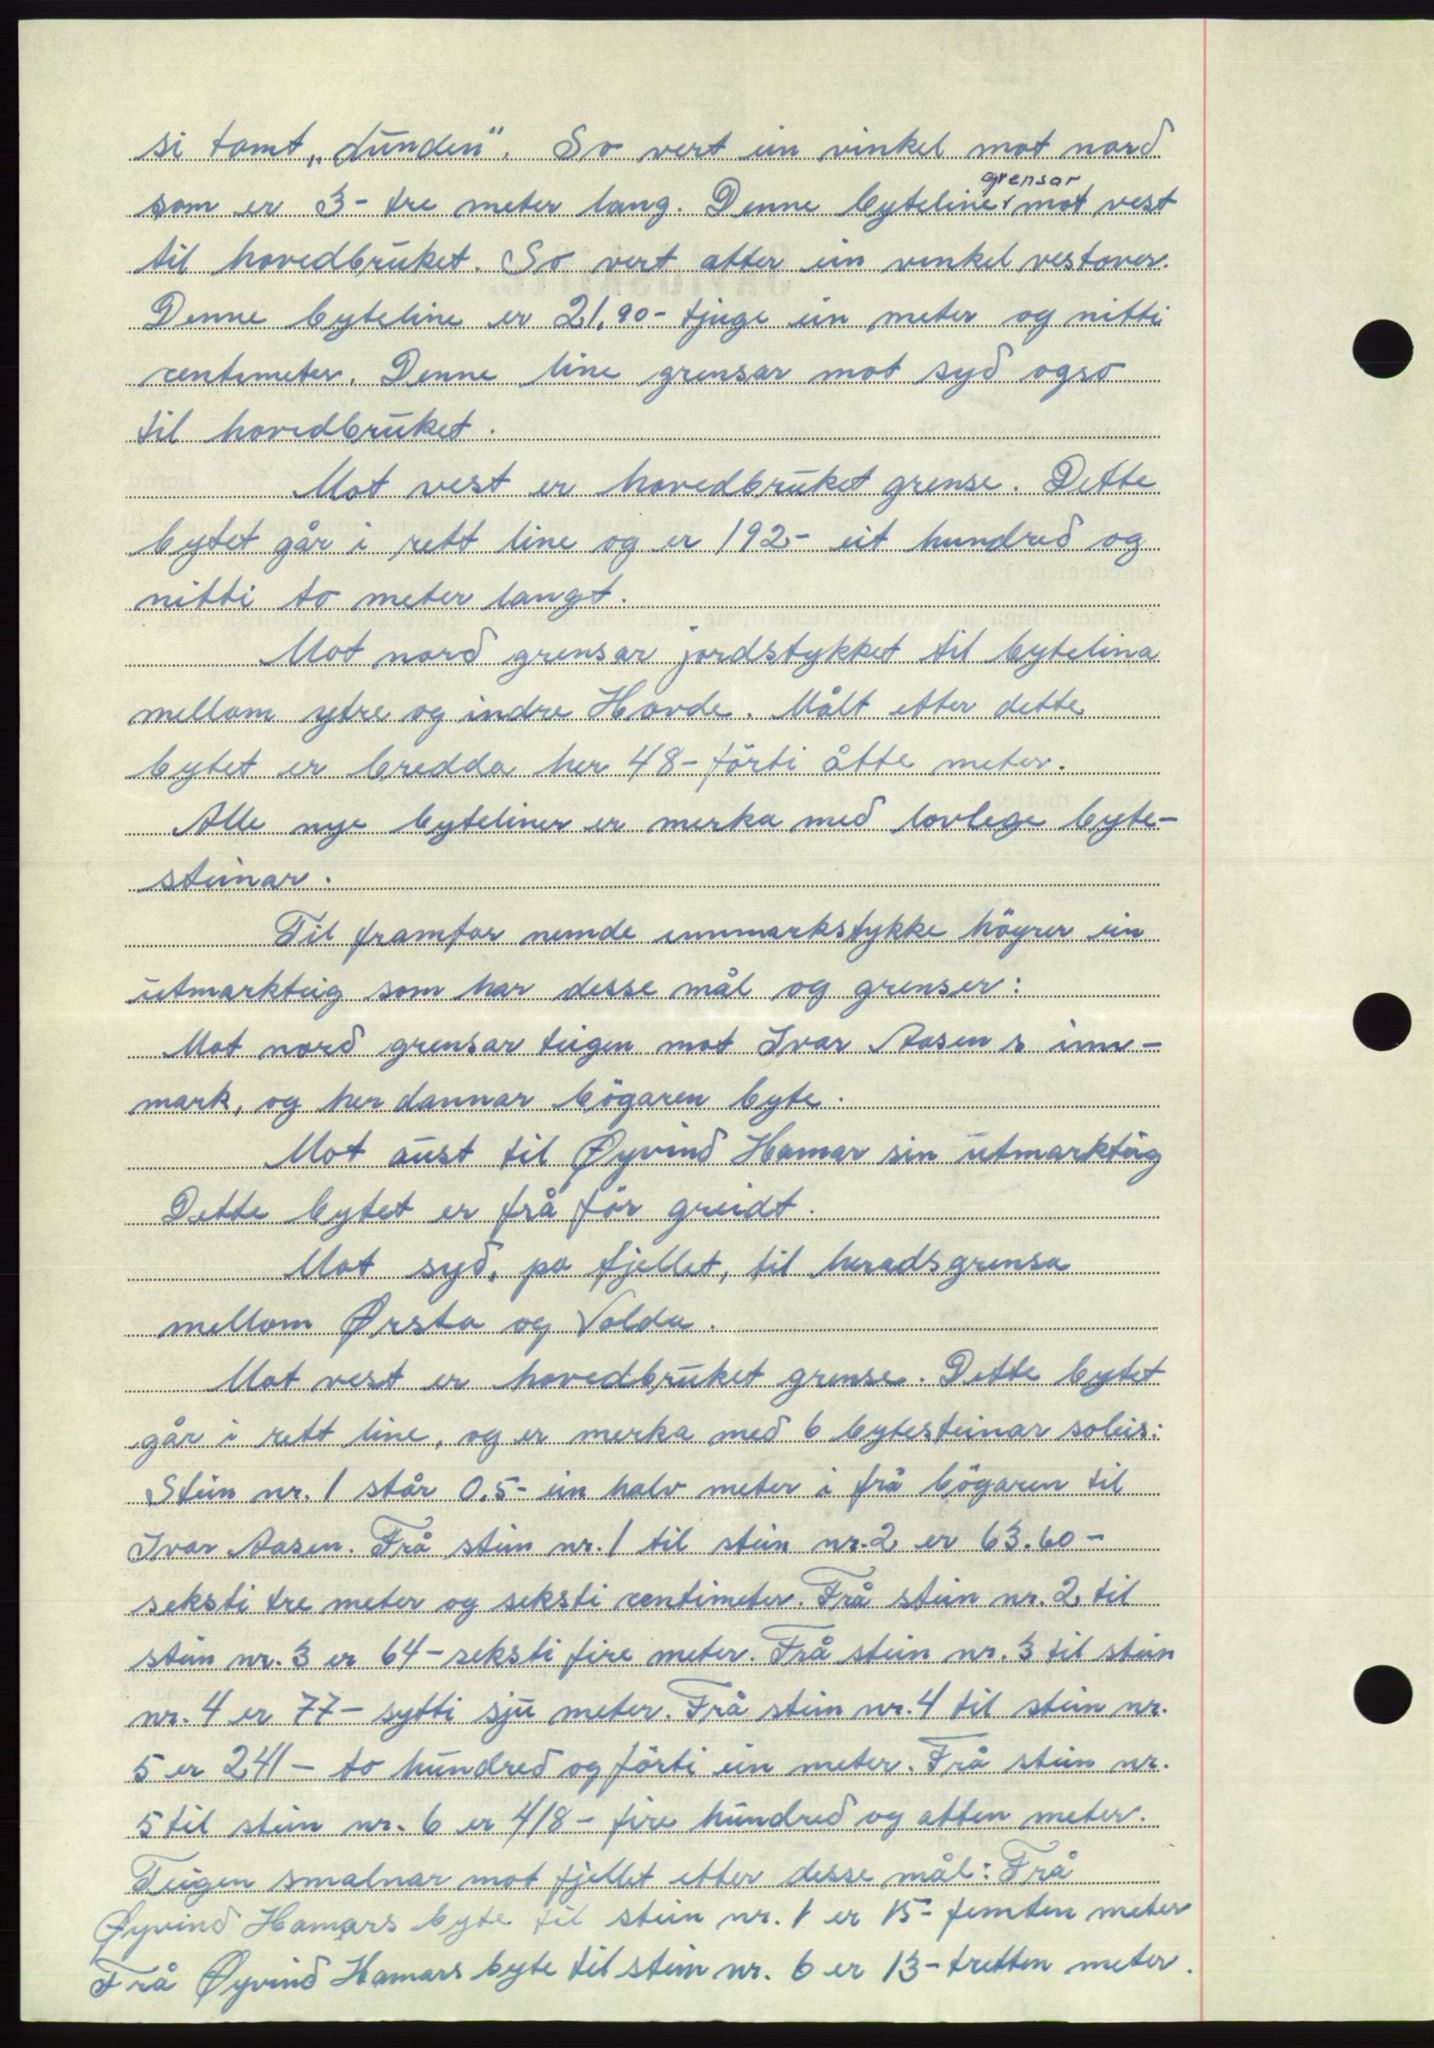 si tomt „Lunden". So vert ein vinkel mot nord
som er 3- tre meter lang. Denne byteline grensar mot vest
til hovedbruket. So vert atter ein venkel vestover.
Denne byteline er 21.90- tjuge ein meter og nitti
centimeter. Denne line grensar mot syd ogso
til hovedbruket.
Mot vest er hovedbruket grense. Dette
bytet går i rett line og er 192- eit hundred og
nitti to meter langt.
Mot nord grensar jordstykket til bytelina
mellom ytre og indre Hovde. Målt etter dette
bytet er bredda her 48- förti åtte meter.
Alle nye byteliner er merka med lovlege byte-
steinar.
Til framfor nemde innmarkstykke höyrer ein
utmarkteig som har desse mål og grenser:
Mot nord grensar teigen mot Ivar Aasen s inn-
mark, og her dannar bögaren byte.
Mot aust til Øyvind Hamar sin utmarkteig
Dette bytet er frå för greidt.
Mot syd, po fjellet, til heradsgrensa
mellom Ørsta og Volda.
Mot vest er hovedbruket grense. Dette bytet
går i rett line, og er merka med 6 bytesteinar soleis:
Stein nr. 1 står 0.5- ein halv meter i frå bögaren til
Ivar Aasen. Frå stein nr. 1 til stein nr. 2 er 63.60-
seksti tre meter og seksti centimeter. Frå stein nr. 2 til
stein nr. 3 er 64- seksti fire meter. Frå stein nr. 3 til stein
nr. 4 er 77- sytti sju meter. Frå stein nr. 4 til stein nr.
5 er 241- to hundred og förti ein meter. Frå stein nr.
5 til stein nr. 6 er 418- fire hundred og atten meter.
Teigen smalnar mot fjellet etter desse mål: Frå
Øyvind Hamars byte til stein nr. 1 er 15- femten meter
Frå Øyvind Hamars byte til stein nr. 6 er 13- tretten meter.